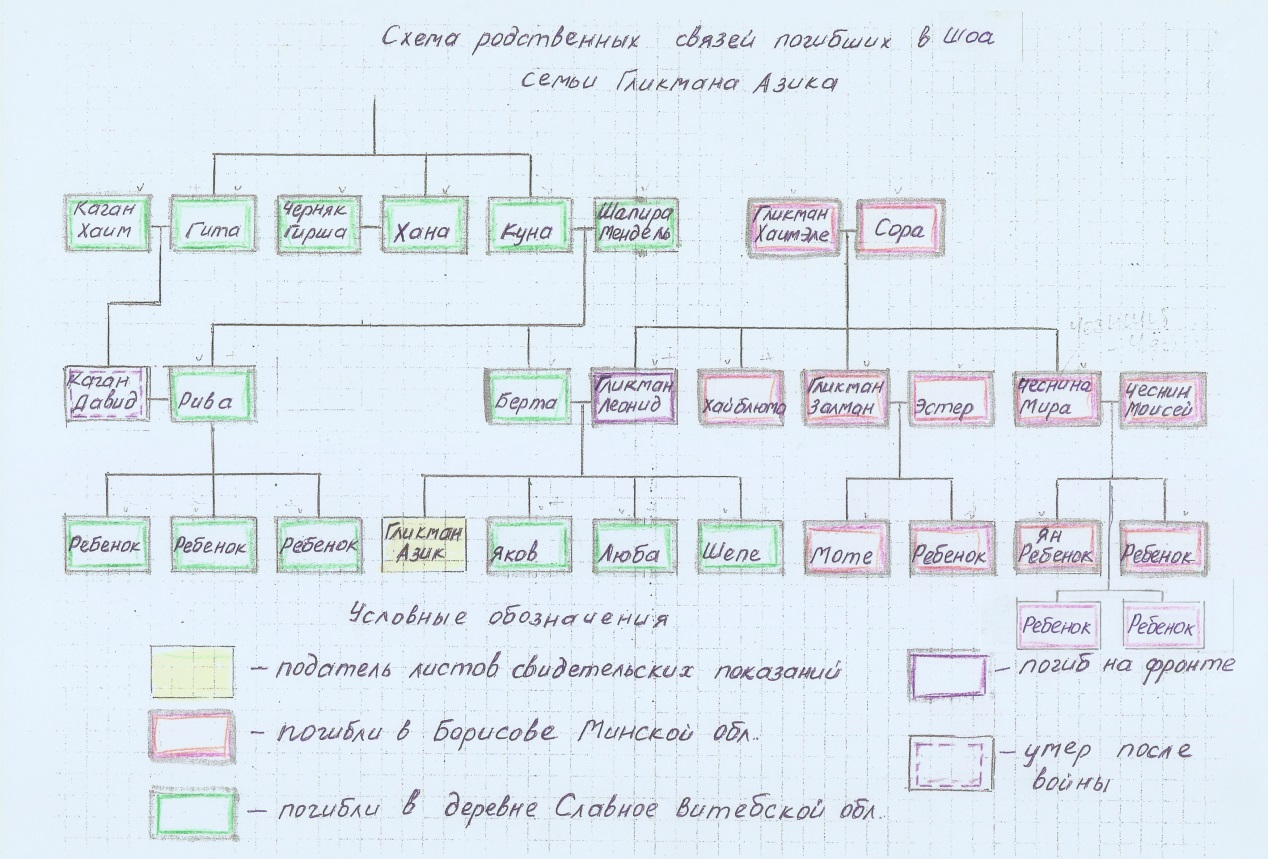 Схема родственных связей погибших в Шоа
семьи Гликмана Азика
Каган
Хаим
Гита
Черняк
Гирша
Хана
Куна
Шапира
Мендель
Гликман
Хаимэле
Сора
Каган
Давид
Рива
Берта
Гликман
Леонид
Хайблюма
Гликман
Залман
Эстер
Чеснина
Мира
Чеснин
Моисей
Ребенок
Ребенок
Ребенок
Гликман
Азик
Яков
Люба
Шепе
Моте
Ребенок
Ян
Ребенок
Ребенок
Ребенок
Ребенок
Условные обозначения
– податель листов свидетельских показаний
– погибли в Борисове Минской обл.
– погибли в деревне Славное Витебской обл.
– погиб на фронте
– умер после
войны